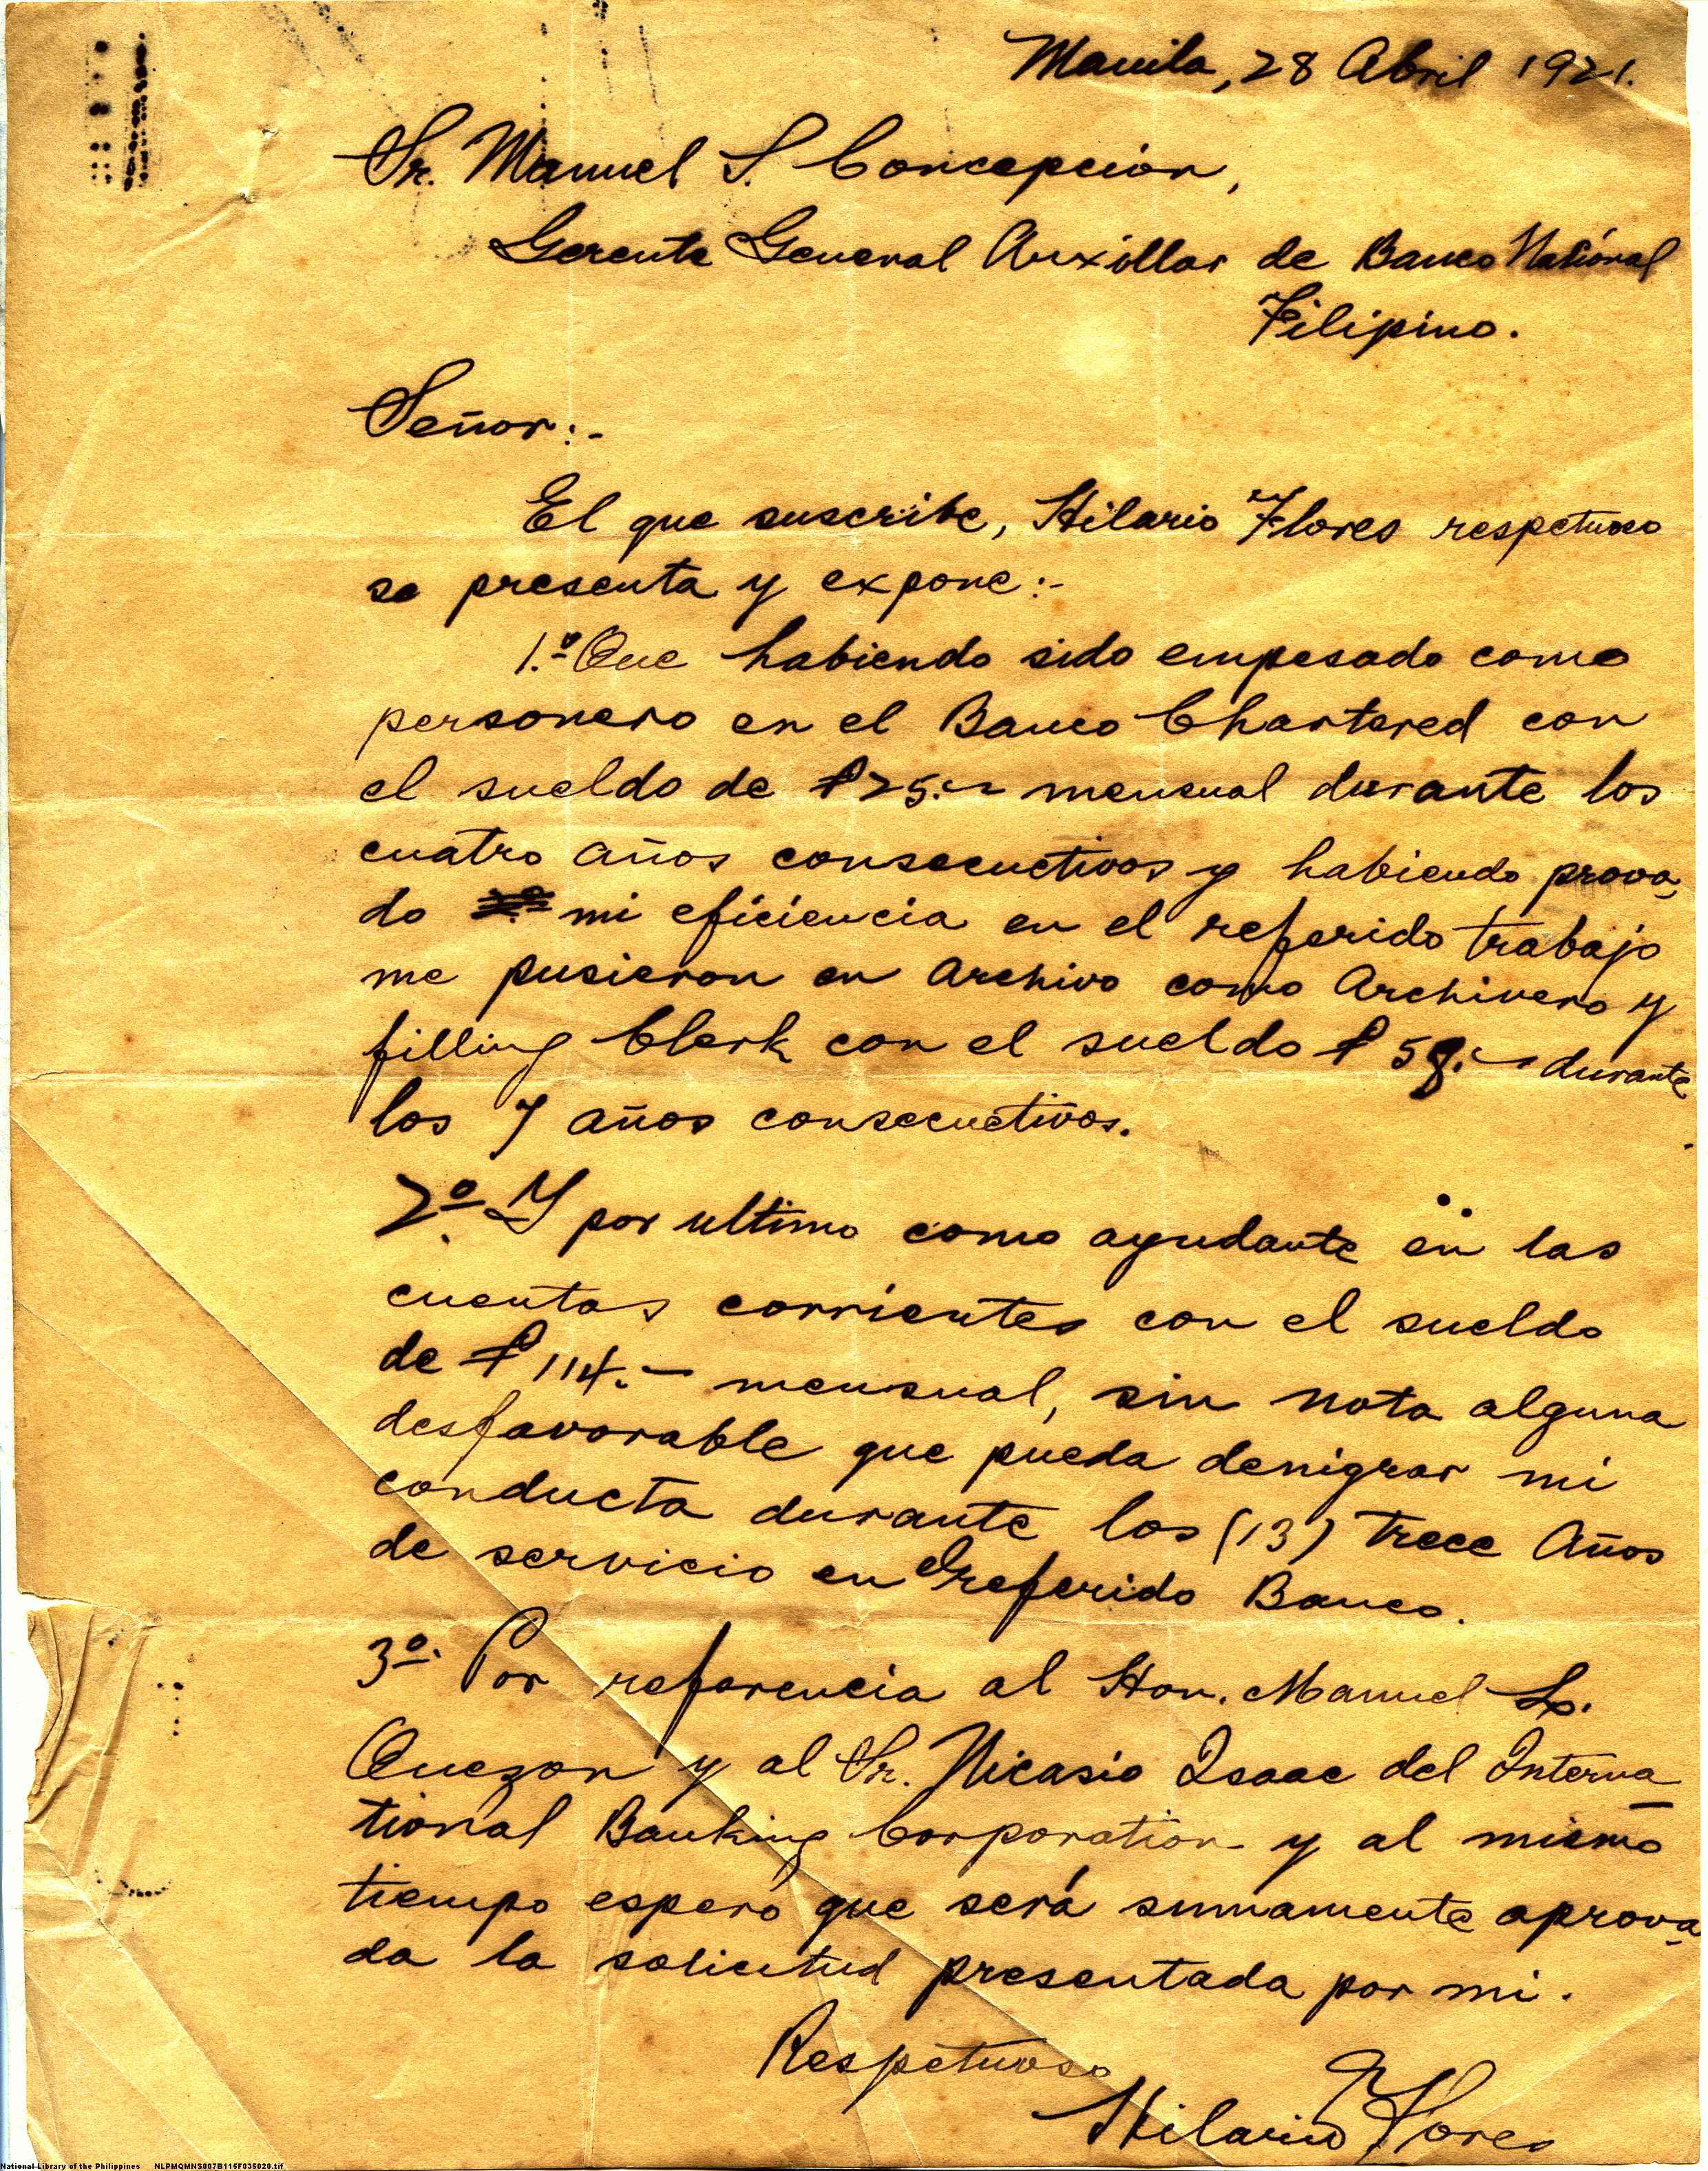 Manila, 28 Abril 1921.
Sr. Manuel S. Concepcion,
Gerente General Auxillar de Banco Naciónal
Filipino.
Señor:-
El que suscribe, Hilario Flores respetuoso
se presenta y expone:-
1.º Que habiendo sido empesado como
personero en el Banco Chartered con
el sueldo de ₱25.- mensual durante los
cuatro años consecuctivos y habiendo prova
do mi eficiencia en el referido trabajo
me pusieron en Archivo como Archivero y
filling Clerk con el sueldo ₱ 58.- durante
los 7 años consecuctivos.
2º. Y por ultimo como ayudante en las
cuentas corrientes con el sueldo
de ₱ 114.- mensual, sin nota alguna
desfavorable que pueda denigrar mi
conducta durante los (13) trece Años
de servicio en el referido Banco.
3º. Por referencia al Hon. Manuel L.
Quezon y al Sr. Nicasio Isaac del Interna
tional Banking Corporation y al mismo
tiempo espero que será sumamente aprova
da la solicitud presentada por mi.
Respetuoso
Hilario Flores
National Library of the Philippines NLPMQMNS007B115F035020.tif